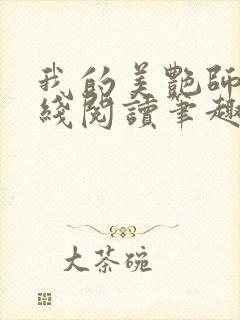 我的美艷師
綫閱讀筆趣
大茶碗